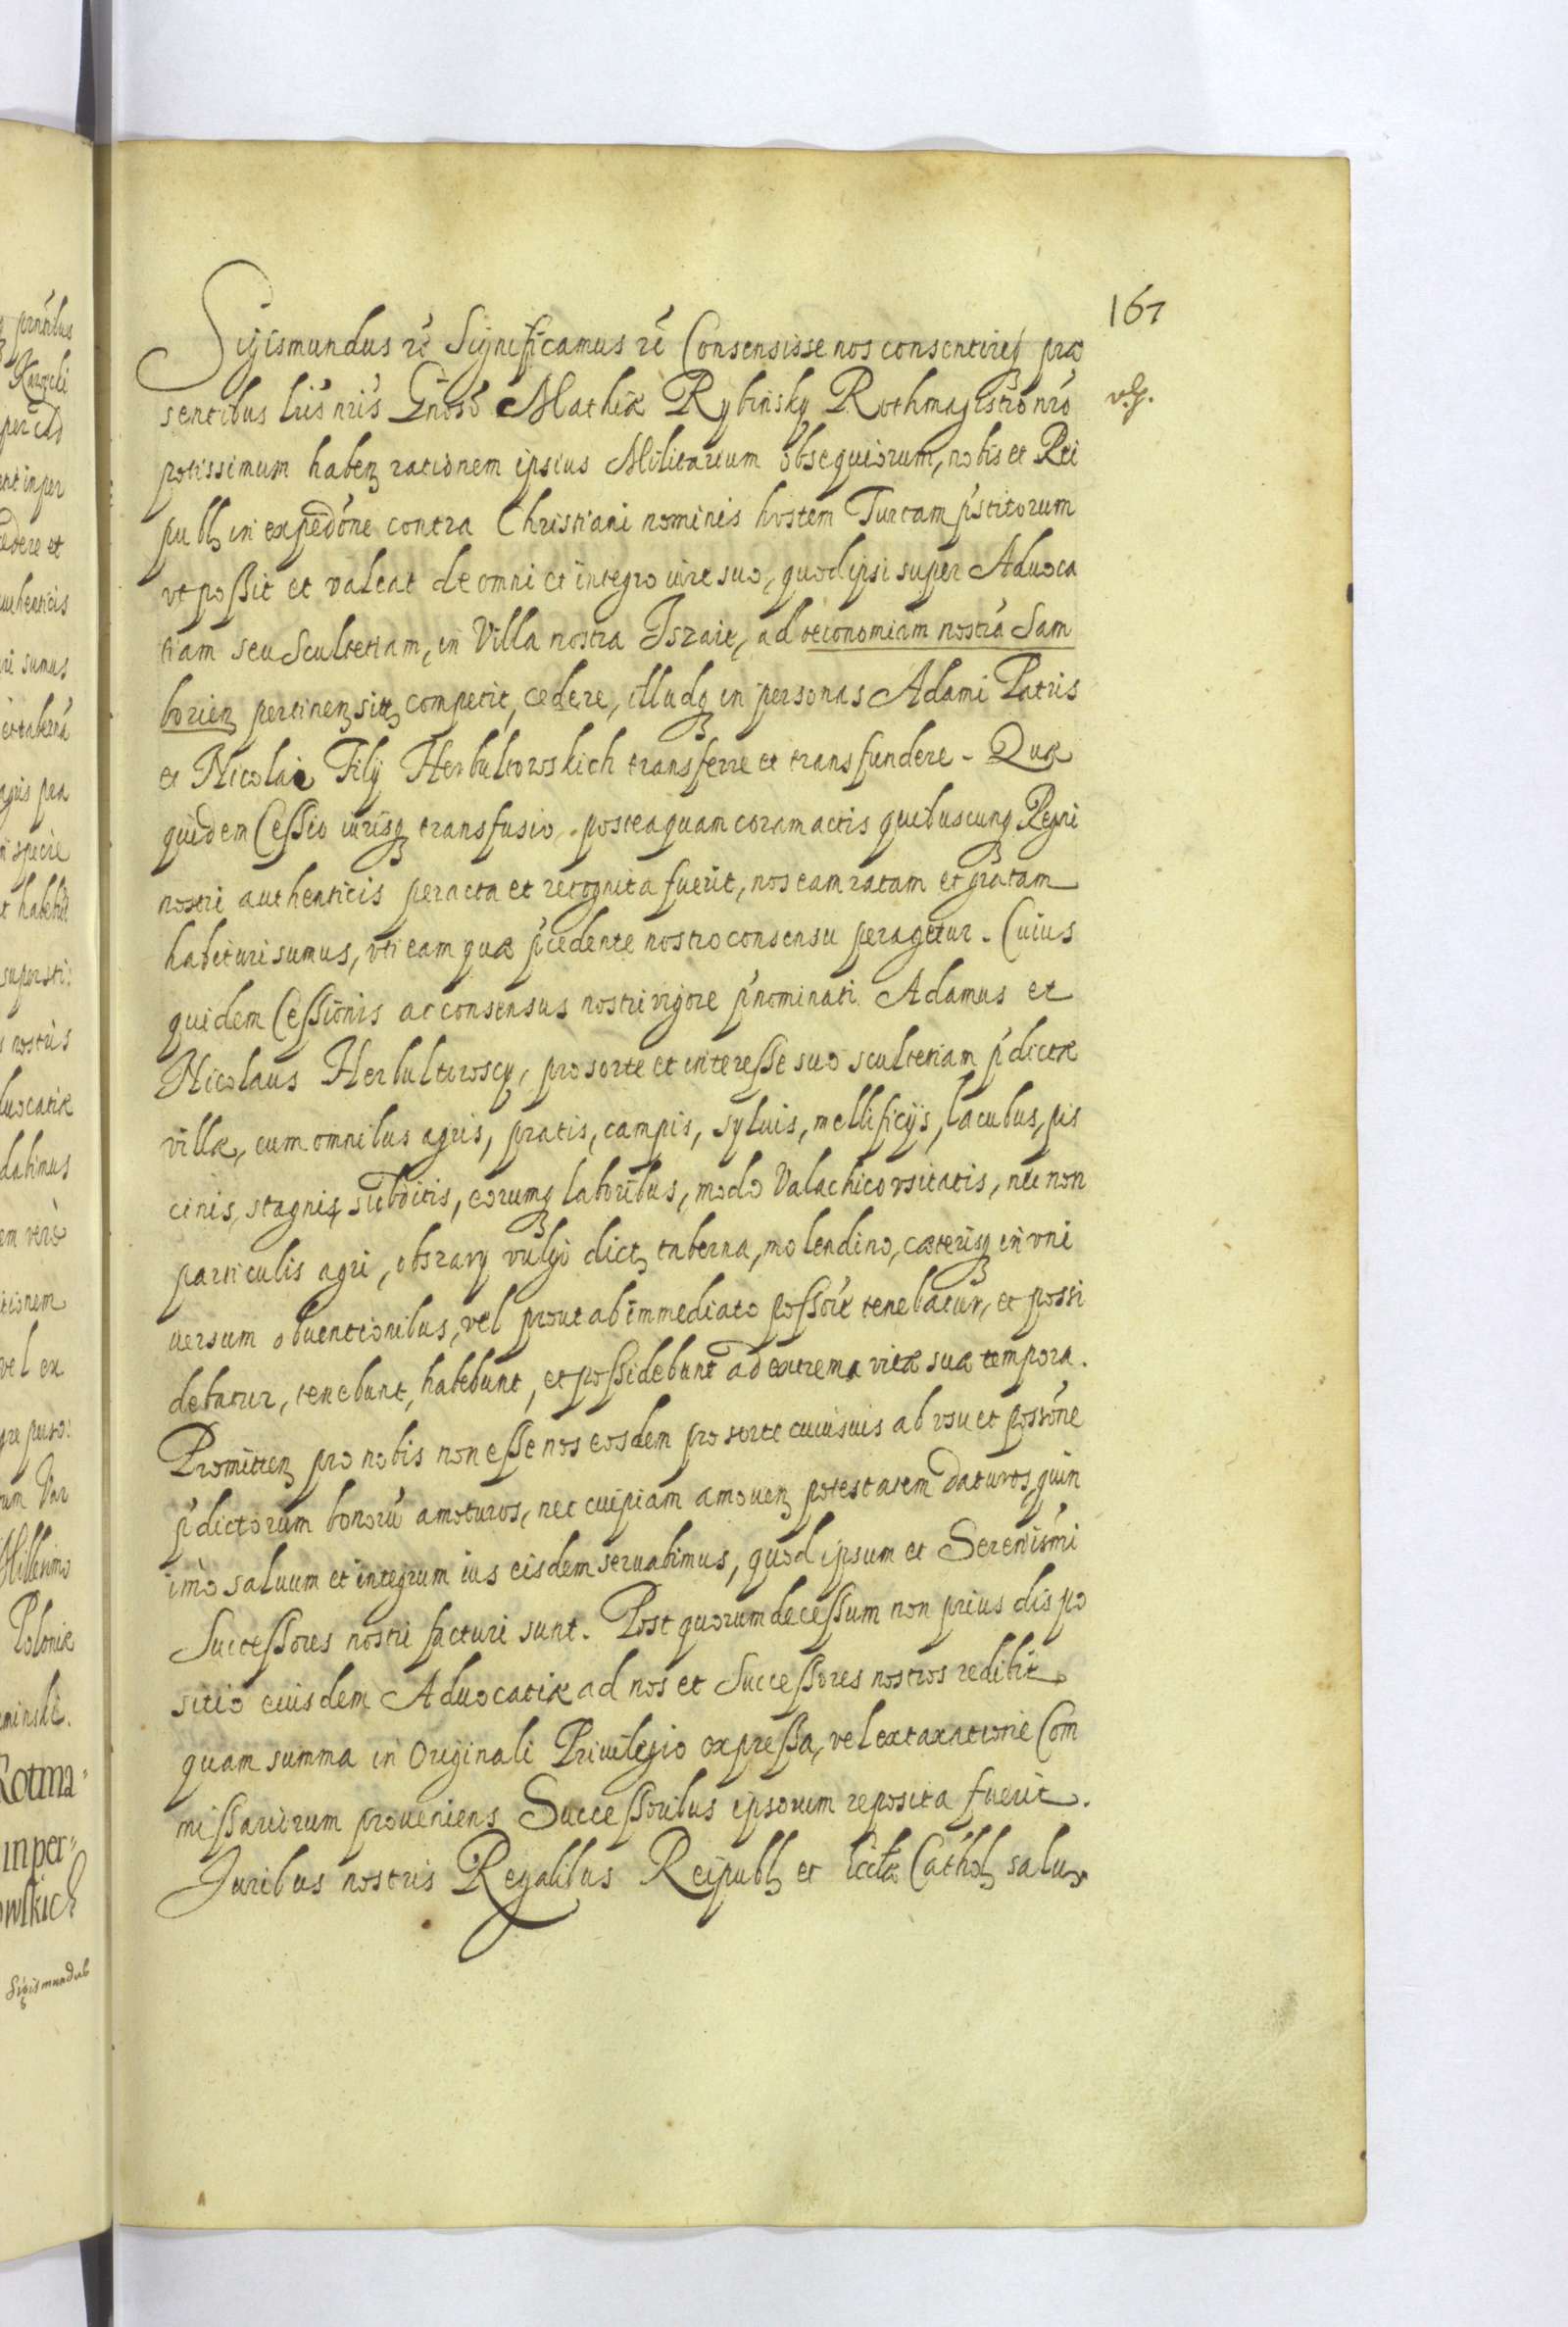 161
Sigismundus rč Significamus rč Consensisse nos consentireq præ
sentibus lrīs nrīs Gnoso Mathiæ Rybinsky Rothmagistro nro
potissimum haben rationem ipsius Militarium obsequiorum, nobis et Rei
publ in expedōne contra Christiani nominis hostem Turcam pstitorum
vt possit et valeat de omni et integro iure suo, quod ipsi super Aduoca
tiam seu Scultetiam, in Villa nostra Iszaie, ad oeconomiam nostrā Sam
borien pertinen sitt competit, cedere, illudq in personas Adami Patris
et Nicolai Filij Herbultowskich transferre et transfundere. Quæ
quidem Cessio iurisq transfusio, posteaquam coram actis quibuscunq Regni
nostri authenticis peracta et recognita fuerit, nos eam ratam et gratam
habituri sumus, vti eam quæ pcedente nostro consensu peragetur. Cuius
quidem Cessionis ac consensus nostri vigore pnominati Adamus et
Nicolaus Herbultowscy, pro sorte et interesse suo scultetiam pdictæ
villæ, cum omnibus agris, pratis, campis, syluis, mellificijs, lacubus, pis
cinis, stagnis, subditis, eorumq laboribus, modo Valachico vsitatis, nec non
particulis agri, obszary vulgo dict, taberna, molendino, cæterisq in vni
uersum obuentionibus, vel prout ab immediato possōre tenebatur, et possi
debatur, tenebunt, habebunt, et possidebunt ad extrema vitæ suæ tempora.
Promitten pro nobis non esse nos eosdem pro sorte cuiusuis ab vsu et possōne
pdictorum bonorū amoturos, nec cuipiam amouen potestatem daturos, quin
imo saluum et integrum ius eisdem seruabimus, quod ipsum et Serenismi
Successores nostri facturi sunt. Post quorum decessum non prius dispo
sitio eiusdem Aduocatiæ ad nos et Successores nostros redibit
quam summa in Originali Priuilegio expressa, vel ex taxatione Com
missariorum proueniens Successoribus ipsorum reposita fuerit.
Iuribus nostris Regalibus Reipubl et Eccle Cathol saluis